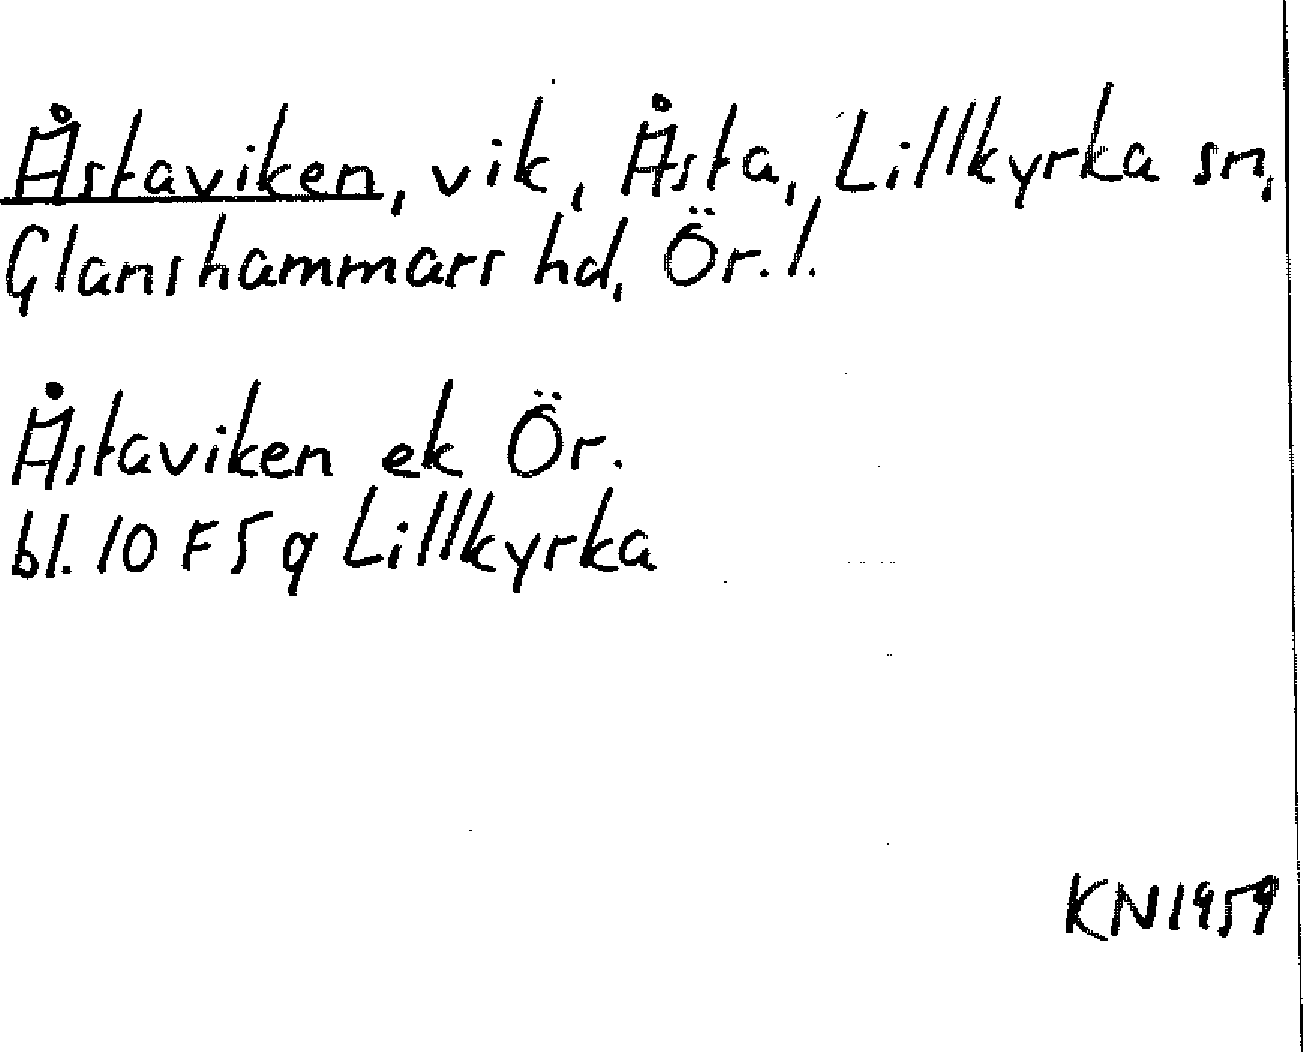 Åstaviken, vik, Åsta, Lillkyrka sn,
Glanshammars hd, Ör. l.
Åstaviken ek Ör.
bl. 10 F 5 g Lillkyrka
KN 1959